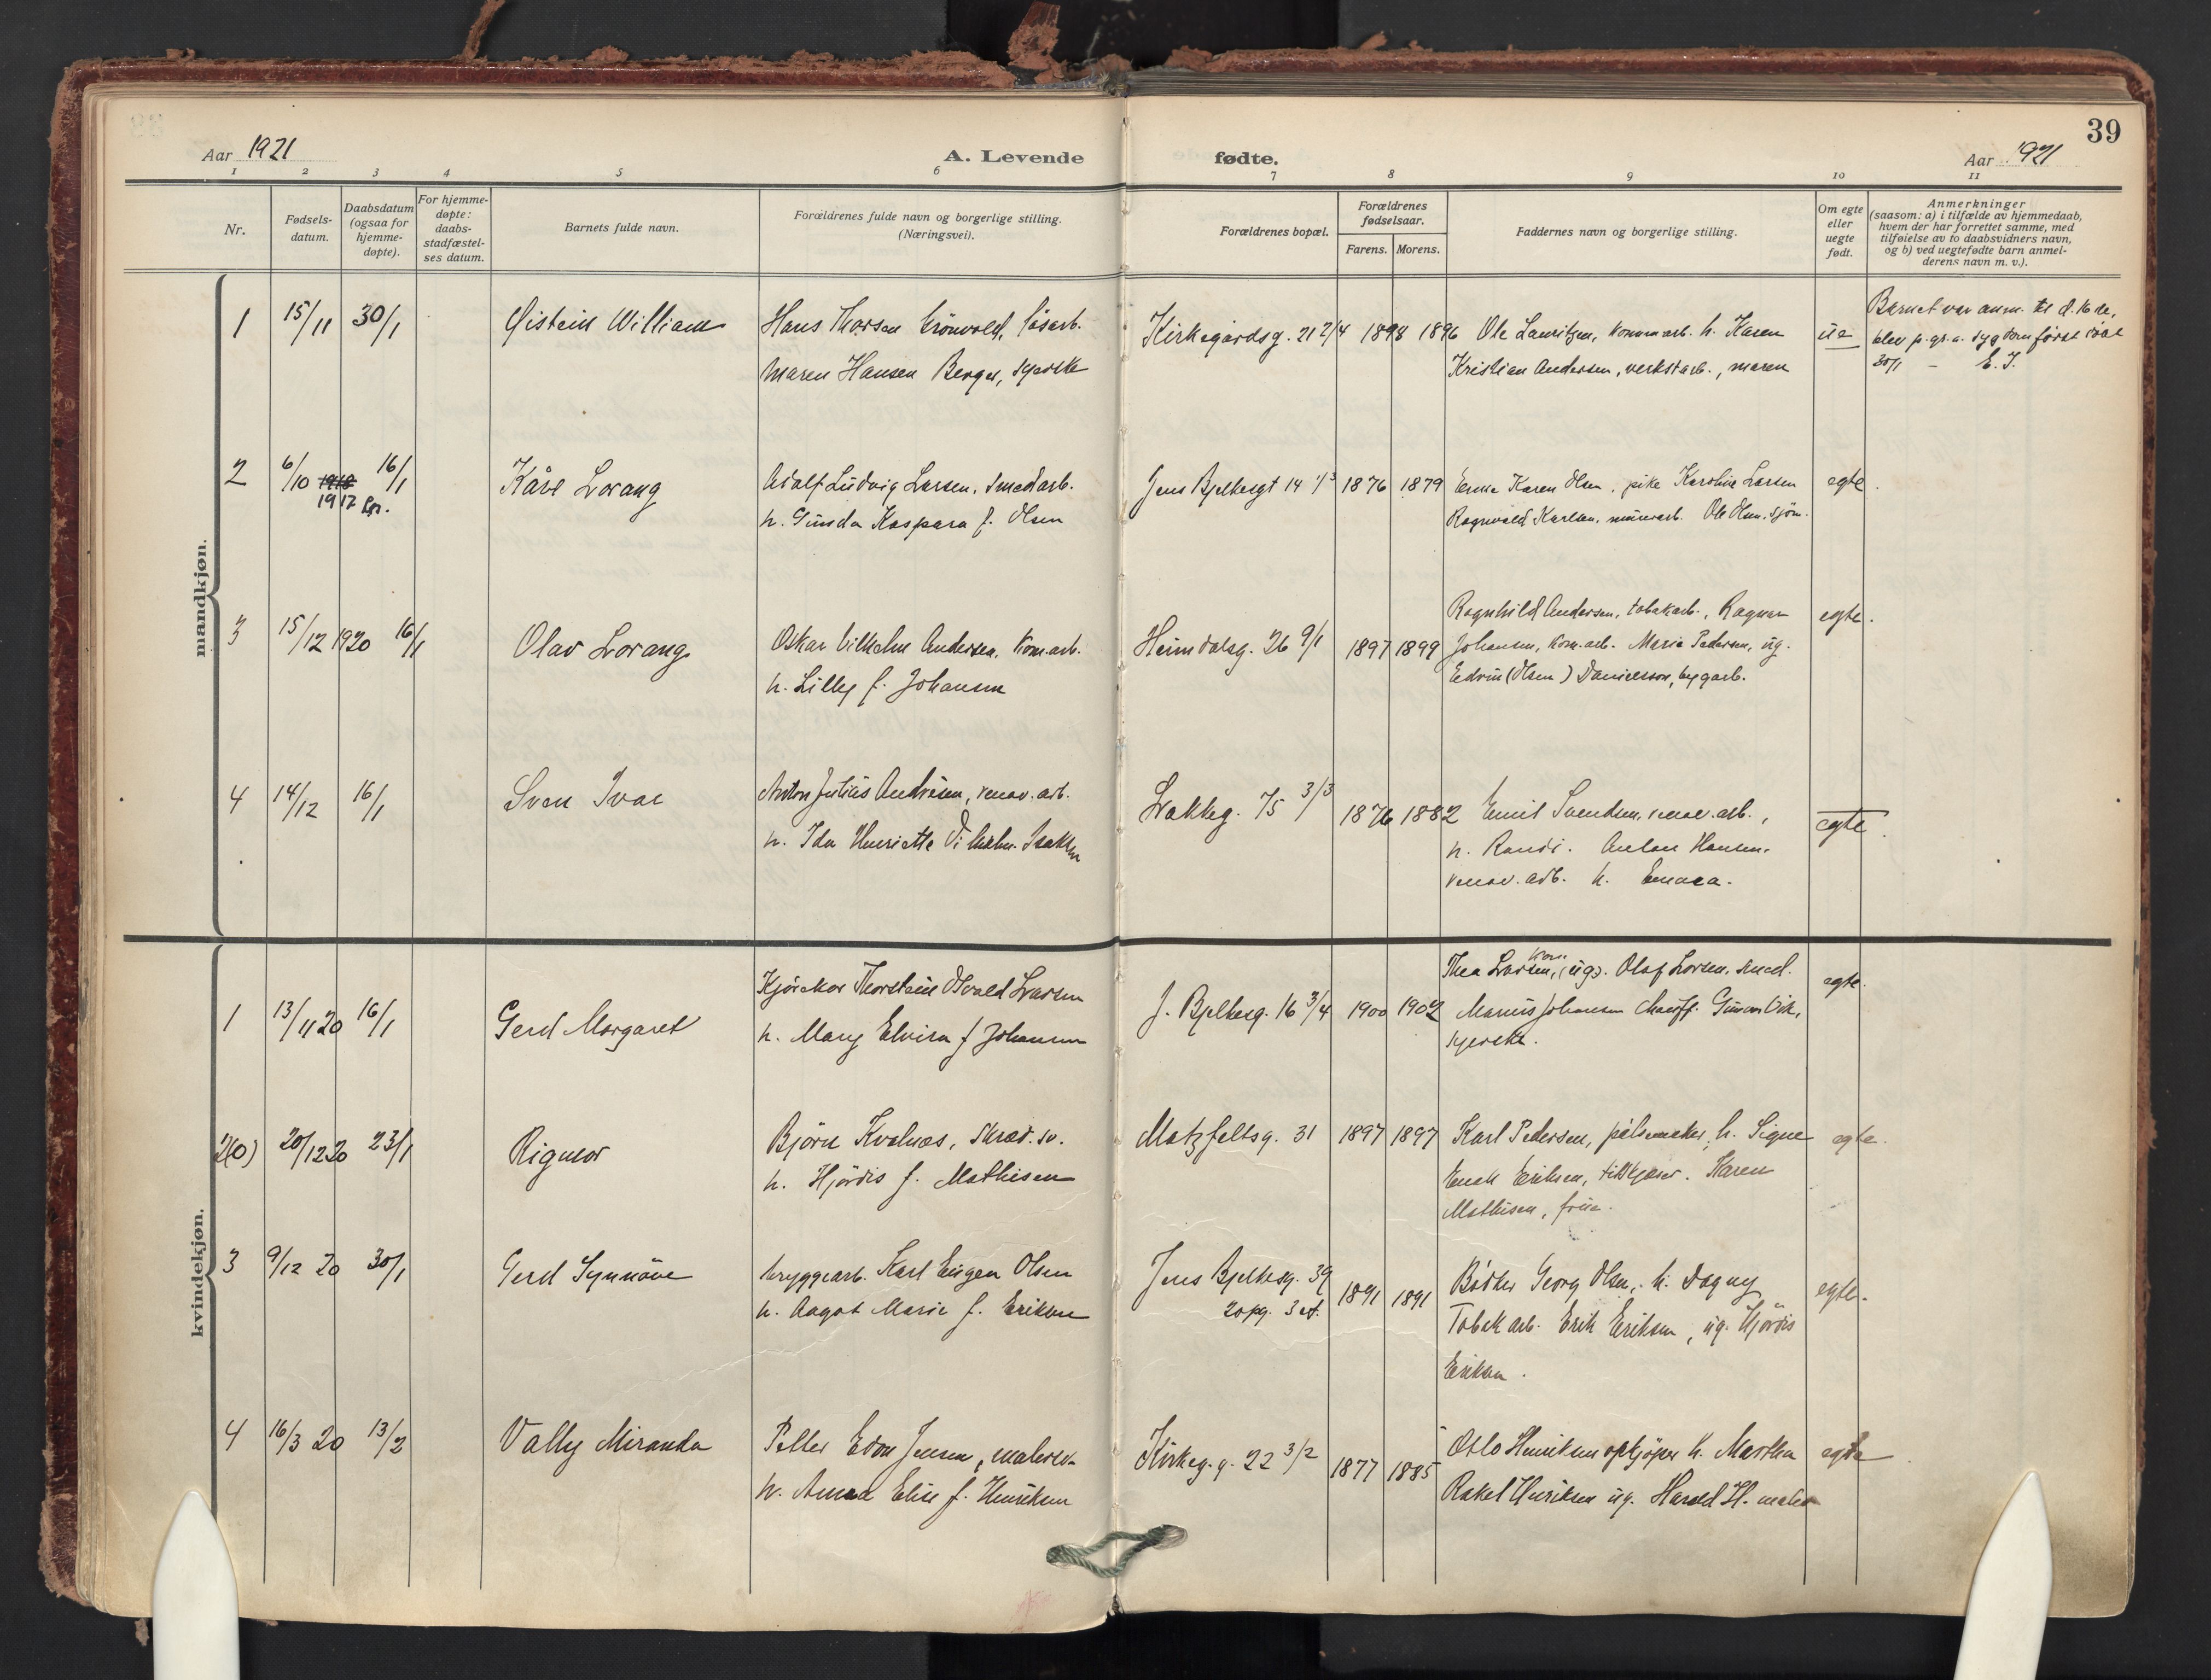 39
Aar 1921
A. Levende
fødte.
Aar 1921
1 2 3 4 5 6 7 8 9 10 11
Nr.
Fødsels-
datum.
Daabsdatum
(ogsaa for
hjemme-
døpte).
For hjemme-
døpte:
daabs-
stadfæstel-
ses datum.
Barnets fulde navn.
Forældrenes fulde navn og borgerlige stilling.
(Næringsvei).
Forældrenes bopæl.
Forældrenes
fødselsaar.
Farens. Morens.
Faddernes navn og borgerlige stilling.
Om egte
eller
uegte
født.
Anmerkninger
(saasom: a) i tilfælde av hjemmedaab,
hvem der har forrettet samme, med
tilføielse av to daabsvidners navn,
og b) ved uegtefødte barn anmel-
derens navn m. v.).
mandkjøn.
1 15/11 30/1 Øistein William Hans Thorsen Grönvold, lösarb. Kirkegårdsg. 21 2/4 1898 1896 Ole Lauritzen, kommarb. h. Karen ue Barnet var anm. til d. 16de,
Maren Hansen Berger, syerske Kristian Andersen, verkstarb., Maren blev p. gr. a. sygdom først döbt
30/1 – E. J.
2 6/10 1918 16/1 Kåre Lorang Adolf Ludvig Larsen, smedarb. Jens Bjelkesgt 14 1/3 1876 1879 Erna Karen Olsen, pike Karoline Larsen egte.
1917 h. Gunda Kaspara f. Olsen Ragnvald Karlsen, murarb. Ole Olsen, sjöm.
3 15/12 1920 16/1 Olav Lorang Oskar Vilhelm Andersen, kom.arb. Heimdalsg. 26 9/1 1897 1899 Ragnhild Andersen, tobakarb., Ragnar egte.
h. Lilly f. Johansen Johansen, kom.arb. Marie Pedersen, ug.
Edvin (Olsen) Danielsson, bygarb.
4 14/12 16/1 Sven Ivar Anton Julius Andresen, renov. arb. Lakkeg. 75 3/3 1876 1882 Emil Svendsen, renov. arb., egte.
h. Ida Henriette Vilhelm. Isaksen h. Randi. Anton Hansen,
renov. arb. h. Emma.
kvindekjøn.
1 13/11 20 16/1 Gerd Margaret Kjörekar Thorstein Osvald Larsen J. Bjelkesg. 16 3/4 1900 1902 Thea Larsen, (ug). Olaf Larsen, smed. egte.
h. Mary Elvira f. Johansen Marius Johansen chauff. Gunvor Vik,
syerske.
2(0) 20/12 20 23/1 Rigmor Björn Kvalnæs, skræd. sv. Motzfeltsg. 31 1897 1897 Karl Pedersen, pölsemaker, h. Signe egte.
h. Hjördis f. Mathisen Enok Eriksen, tilskjærer. Karen
Mathisen, frue.
3 9/12 20 30/1 Gerd Synnöve bryggearb. Karl Eugen Olsen Jens Bjelkesg. 39 1891 1891 Bödker Georg Olsen, h. Dagny egte.
h. Aagot Marie f. Eriksen 2 opg. 3 et. Tobak arb. Erik Eriksen, ug. Hjördis
Eriksen.
4 16/3 20 13/2 Vally Miranda Petter Edon Jensen, malersv. Kirkeg. g. 22 3/2 1877 1885 Otto Henriksen opkjöper h. Martha egte
h. Anna Elise f. Henriksen Rakel Henriksen ug. Harald H. maler